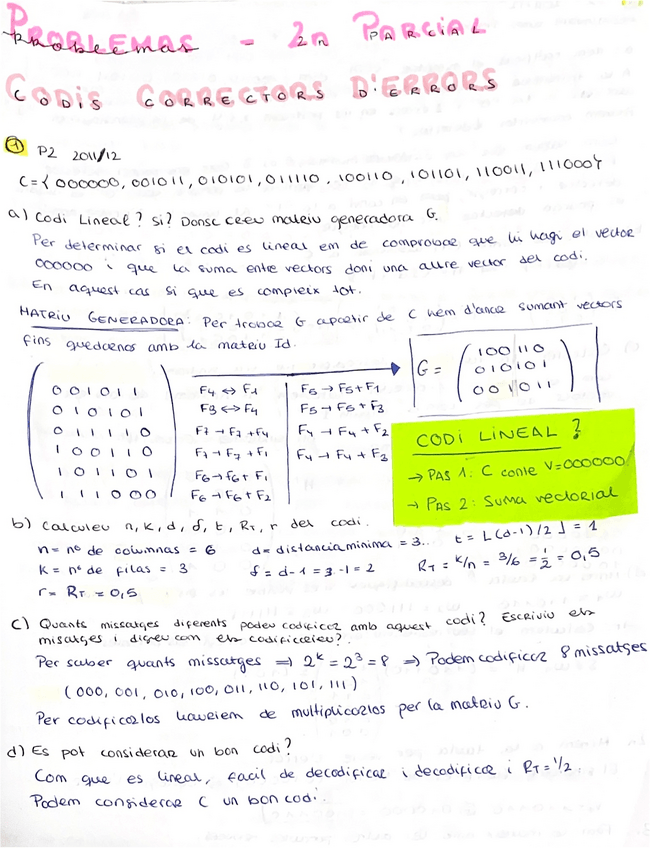 PROBLEMAS - 2n PARCIAL
Problemas
CODIS CORRECTORS D'ERRORS
1 P2 2011/12
C={000000, 001011, 010101, 011110, 100110, 101101, 110011, 111000}
a) Codi Lineal? Si? Donsc creu matriu generadora G.
Per determinar si el codi es lineal em de comprovar que hi hagi el vector
000000 i que la suma entre vectors doni una altre vector del codi.
En aquest cas si que es compleix tot.
MATRIU GENERADORA: Per trobar G apartir de C hem d'anar sumant vectors
fins quedarnos amb la matriu Id.
0 0 1 0 1 1
0 1 0 1 0 1
0 1 1 1 1 0
1 0 0 1 1 0
1 0 1 1 0 1
1 1 1 0 0 0
F4 ↔ F1
F3 ↔ F4
F7 → F7 + F4
F7 → F7 + F1
F6 → F6 + F1
F6 → F6 + F2
F5 → F5 + F1
F5 → F5 + F3
F4 → F4 + F2
F4 → F4 + F3
G =
100 110
010101
001011
CODI LINEAL?
→ PAS 1: C conte V=000000
→ PAS 2: Suma vectorial
b) Calculeu n, k, d, δ, t, RT, r del codi.
n = nº de columnas = 6 d = distancia minima = 3.. t = ⌊(d-1)/2⌋ = 1
k = nº de filas = 3 δ = d - 1 = 3 - 1 = 2 RT = k/n = 3/6 = 1/2 = 0,5
r = RT = 0,5
c) Quants missatges diferents podeu codificar amb aquest codi? Escriviu els
misatges i digeu com els codificarieu?
Per saber quants missatges ⇒ 2^k = 2^3 = 8 ⇒ Podem codificar 8 missatges
(000, 001, 010, 100, 011, 110, 101, 111)
Per codificarlos hauriem de multiplicarlos per la matriu G.
d) Es pot considerar un bon codi?
Com que es lineal, facil de decodificar i decodificar i RT = 1/2.
Podem considerar C un bon codi.